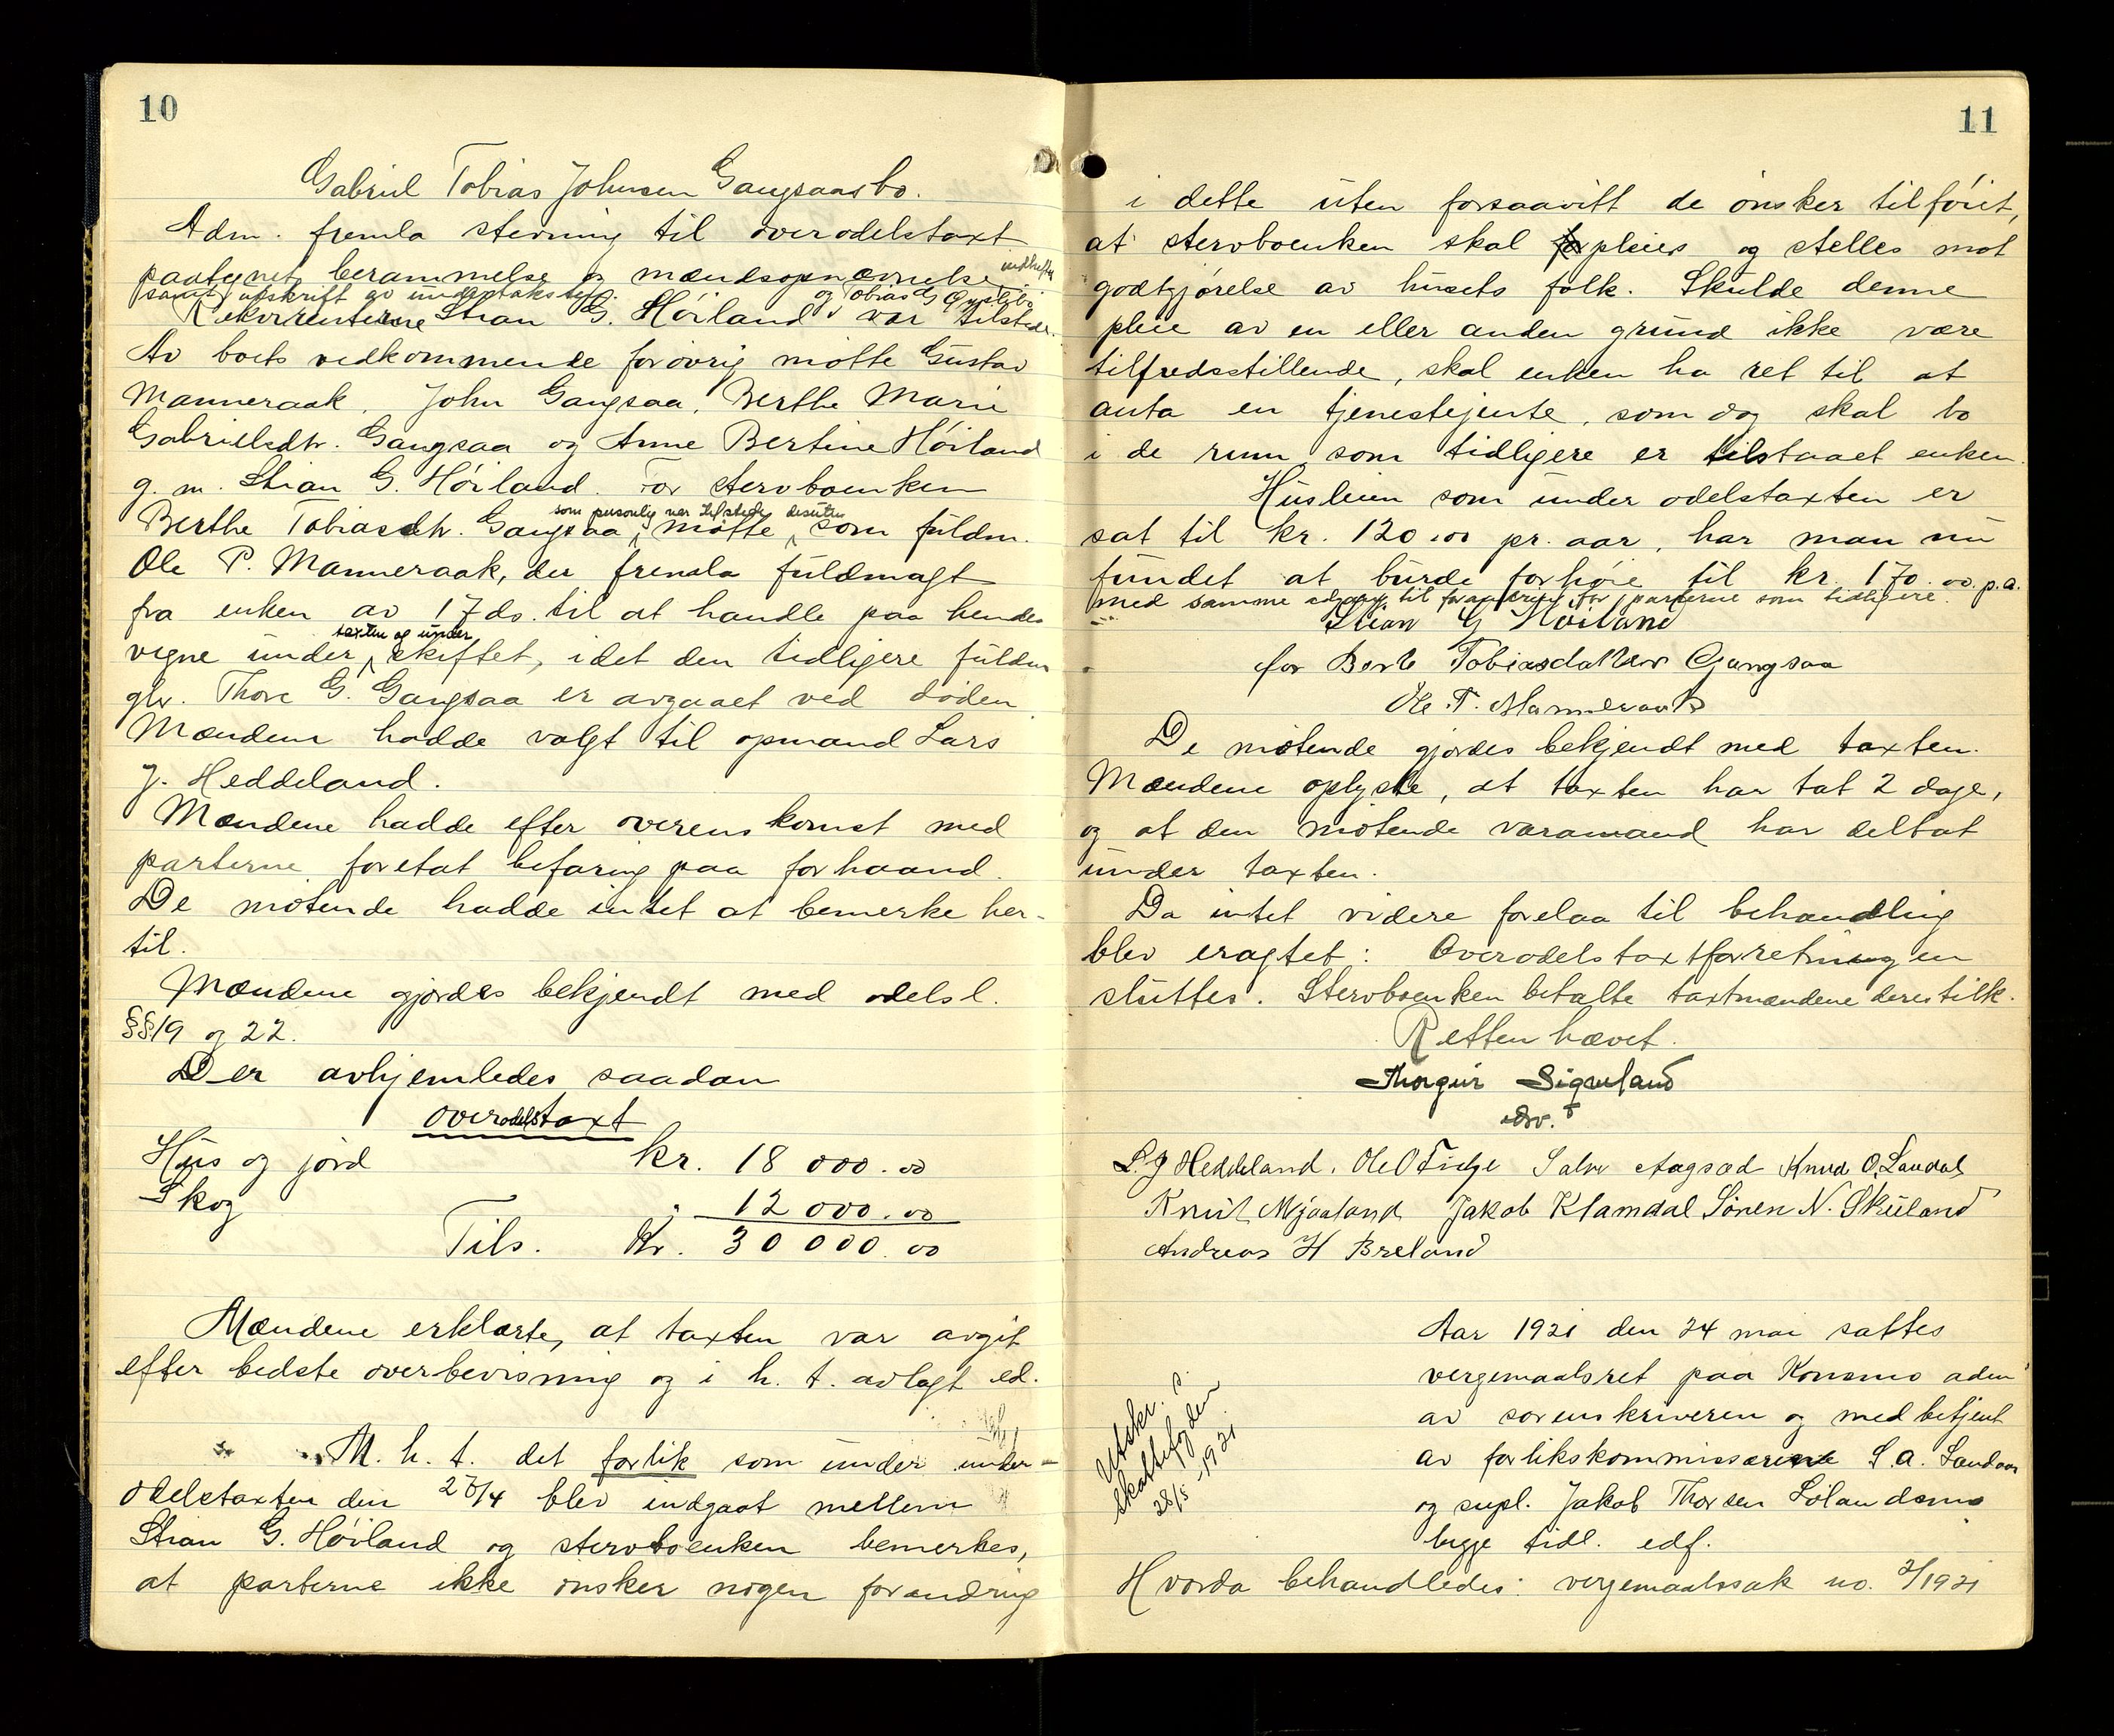 10
Gabriel Tobias Johnsen Gangsaas bo.
Adm. fremla stevning til overodelstaxt
paategnet berammelse og mændsopnævnelse indheftes
samt utskrift av
og Tobias G
Rekvirenterne Stian G. Høiland var tilstede.
Av boets vedkommende forøvrig møtte Gustav
Manneraak, John Gangsaa, Berthe Marie
Gabrielsdtr. Gangsaa og Anne Bertine Høiland
g. m. Stian G. Høiland. For stervboenken
som personlig var tilstede desuten
Berthe Tobiasdtr. Gangsaa, møtte som fuldm.
Ole P. Manneraak, der fremla fuldmagt
fra enken av 17 ds. til at handle paa hendes
taxten og under
vegne under skiftet, idet den tidligere fuldm
Thore G. Gangsaa er avgaaet ved døden.
Mændene hadde valgt til opmand Lars
J. Heddeland.
Mændene hadde efter overenskomst med
parterne foretat befaring paa forhaand.
De møtende hadde intet at bemerke her-
til.
Mændene gjordes bekjendt med odelsl.
§§19 og 22.
Der avhjemledes saadan
overodelstaxt
Hus og jord kr. 18 000.00
Skog " 12 000.00
Tils. Kr. 30 000.00
Mændene erklærte, at taxten var avgit
efter bedste overbevisning og i h. t. avlagt ed.
M. h. t. det forlik som under under-
odelstaxten den 27/4 blev indgaat mellem
Stian G. Høiland og stervboenken bemerkes,
at parterne ikke ønsker nogen forandring
11
i dette uten forsaavitt de ønsker tilføiet,
at stervboenken skal pleies og stelles mot
godtgjørelse av husets folk. Skulde denne
pleie av en eller anden grund ikke være
tilfredsstillende, skal enken ha ret til at
anta en tjenestejente, som dog skal bo
i de rum som tidligere er tilstaaet enken.
Husleien som under odelstaxten er
sat til kr. 120.00 pr. aar, har man nu
fundet at burde forhøie til kr. 170.00 p.a.
med samme adgang til forandring for parterne som tidligere.
Stian G Høiland
for Berte Tobiasdatter Gangsaa
Ole P. Manneraak
De møtende gjordes bekjendt med taxten.
Mændene oplyste, at taxten har tat 2 dage,
og at den møtende varamand har deltat
under taxten.
Da intet videre forelaa til behandling
blev eragtet: Overodelstaxtforretningen
sluttes. Stervboenken betalte taxtmændene deres tilk.
Retten hævet.
Thorgeir Sigveland
edsv. f
L. J Heddeland. Ole O Fidje Salve Aagsæd Knud O. Laudal
Knut Mjaaland Jakob Klamdal Sören N. Skuland
Andreas H Breland
Aar 1921 den 24 mai sattes
vergemaalsret paa Konsmo adm
av sorenskriveren og medbetjent
av forlikskommissærene S. A. Landaas
og supl. Jakob Thorsen Lølandsmo
begge tidl. edf.
Utskr. s.
skattefogden
28/5-1921
Hvorda behandledes: vergemaalssak no. 2/1921